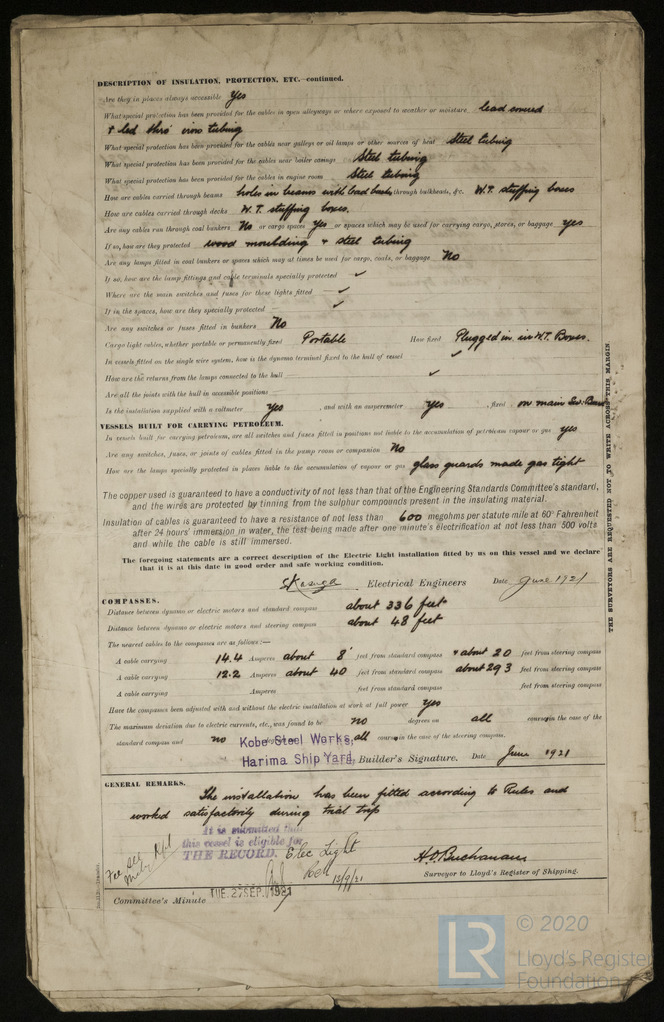 DESCRIPTION OF INSULATION, PROTECTION, ETC.—continued.
Are they in places always accessible Yes
What special protection has been provided for the cables in open alleyways or where exposed to weather or moisture lead covered
+ led thro' iron tubing
What special protection has been provided for the cables near galleys or oil lamps or other sources of heat Steel tubing
What special protection has been provided for the cables near boiler casings Steel tubing
What special protection has been provided for the cables in engine room Steel tubing
How are cables carried through beams holes in beams with lead bushes through bulkheads, &c. W.T. stuffing boxes
How are cables carried through decks W.T. stuffing boxes.
Are any cables run through coal bunkers No or cargo spaces Yes or spaces which may be used for carrying cargo, stores, or baggage Yes
If so, how are they protected wood moulding + steel tubing
Are any lamps fitted in coal bunkers or spaces which may at times be used for cargo, coals, or baggage No
If so, how are the lamp fittings and cable terminals specially protected ✓
Where are the main switches and fuses for these lights fitted ✓
If in the spaces, how are they specially protected ✓
Are any switches or fuses fitted in bunkers No
Cargo light cables, whether portable or permanently fixed Portable How fixed Plugged in in W.T. Boxes.
In vessels fitted on the single wire system, how is the dynamo terminal fixed to the hull of vessel ✓
How are the returns from the lamps connected to the hull ✓
Are all the joints with the hull in accessible positions
Is the installation supplied with a voltmeter Yes , and with an amperemeter Yes , fixed on main Sw: Board
VESSELS BUILT FOR CARRYING PETROLEUM.
In vessels built for carrying petroleum, are all switches and fuses fitted in positions not liable to the accumulation of petroleum vapour or gas Yes
Are any switches, fuses, or joints of cables fitted in the pump room or companion No
How are the lamps specially protected in places liable to the accumulation of vapour or gas glass guards made gas tight
The copper used is guaranteed to have a conductivity of not less than that of the Engineering Standards Committee's standard,
and the wires are protected by tinning from the sulphur compounds present in the insulating material.
Insulation of cables is guaranteed to have a resistance of not less than 600 megohms per statute mile at 60° Fahrenheit
after 24 hours' immersion in water, the test being made after one minute's electrification at not less than 500 volts
and while the cable is still immersed.
The foregoing statements are a correct description of the Electric Light installation fitted by us on this vessel and we declare
that it is at this date in good order and safe working condition.
Electrical Engineers Date June 1921
COMPASSES.
Distance between dynamo or electric motors and standard compass about 336 feet
Distance between dynamo or electric motors and steering compass about 48 feet
The nearest cables to the compasses are as follows:—
A cable carrying 14.4 Amperes about 8' feet from standard compass + about 20 feet from steering compass
A cable carrying 12.2 Amperes about 40 feet from standard compass about 293 feet from steering compass
A cable carrying Amperes feet from standard compass feet from steering compass
Have the compasses been adjusted with and without the electric installation at work at full power Yes
The maximum deviation due to electric currents, etc., was found to be no degrees on all course in the case of the
standard compass and no degrees on all course in the case of the steering compass.
Kobe Steel Works,
Harima Ship Yard, Builder's Signature. Date June 1921
GENERAL REMARKS.
The installation has been fitted according to Rules and
worked satisfactorily during trial trip
It is submitted that
this vessel is eligible for
THE RECORD. Elec Light
13/9/21
H.D. Buchanan
Surveyor to Lloyd's Register of Shipping.
Committee's Minute TUE. 27 SEP. 1921
THE SURVEYORS ARE REQUESTED NOT TO WRITE ACROSS THIS MARGIN
© 2020
Lloyd's Register
Foundation
LR